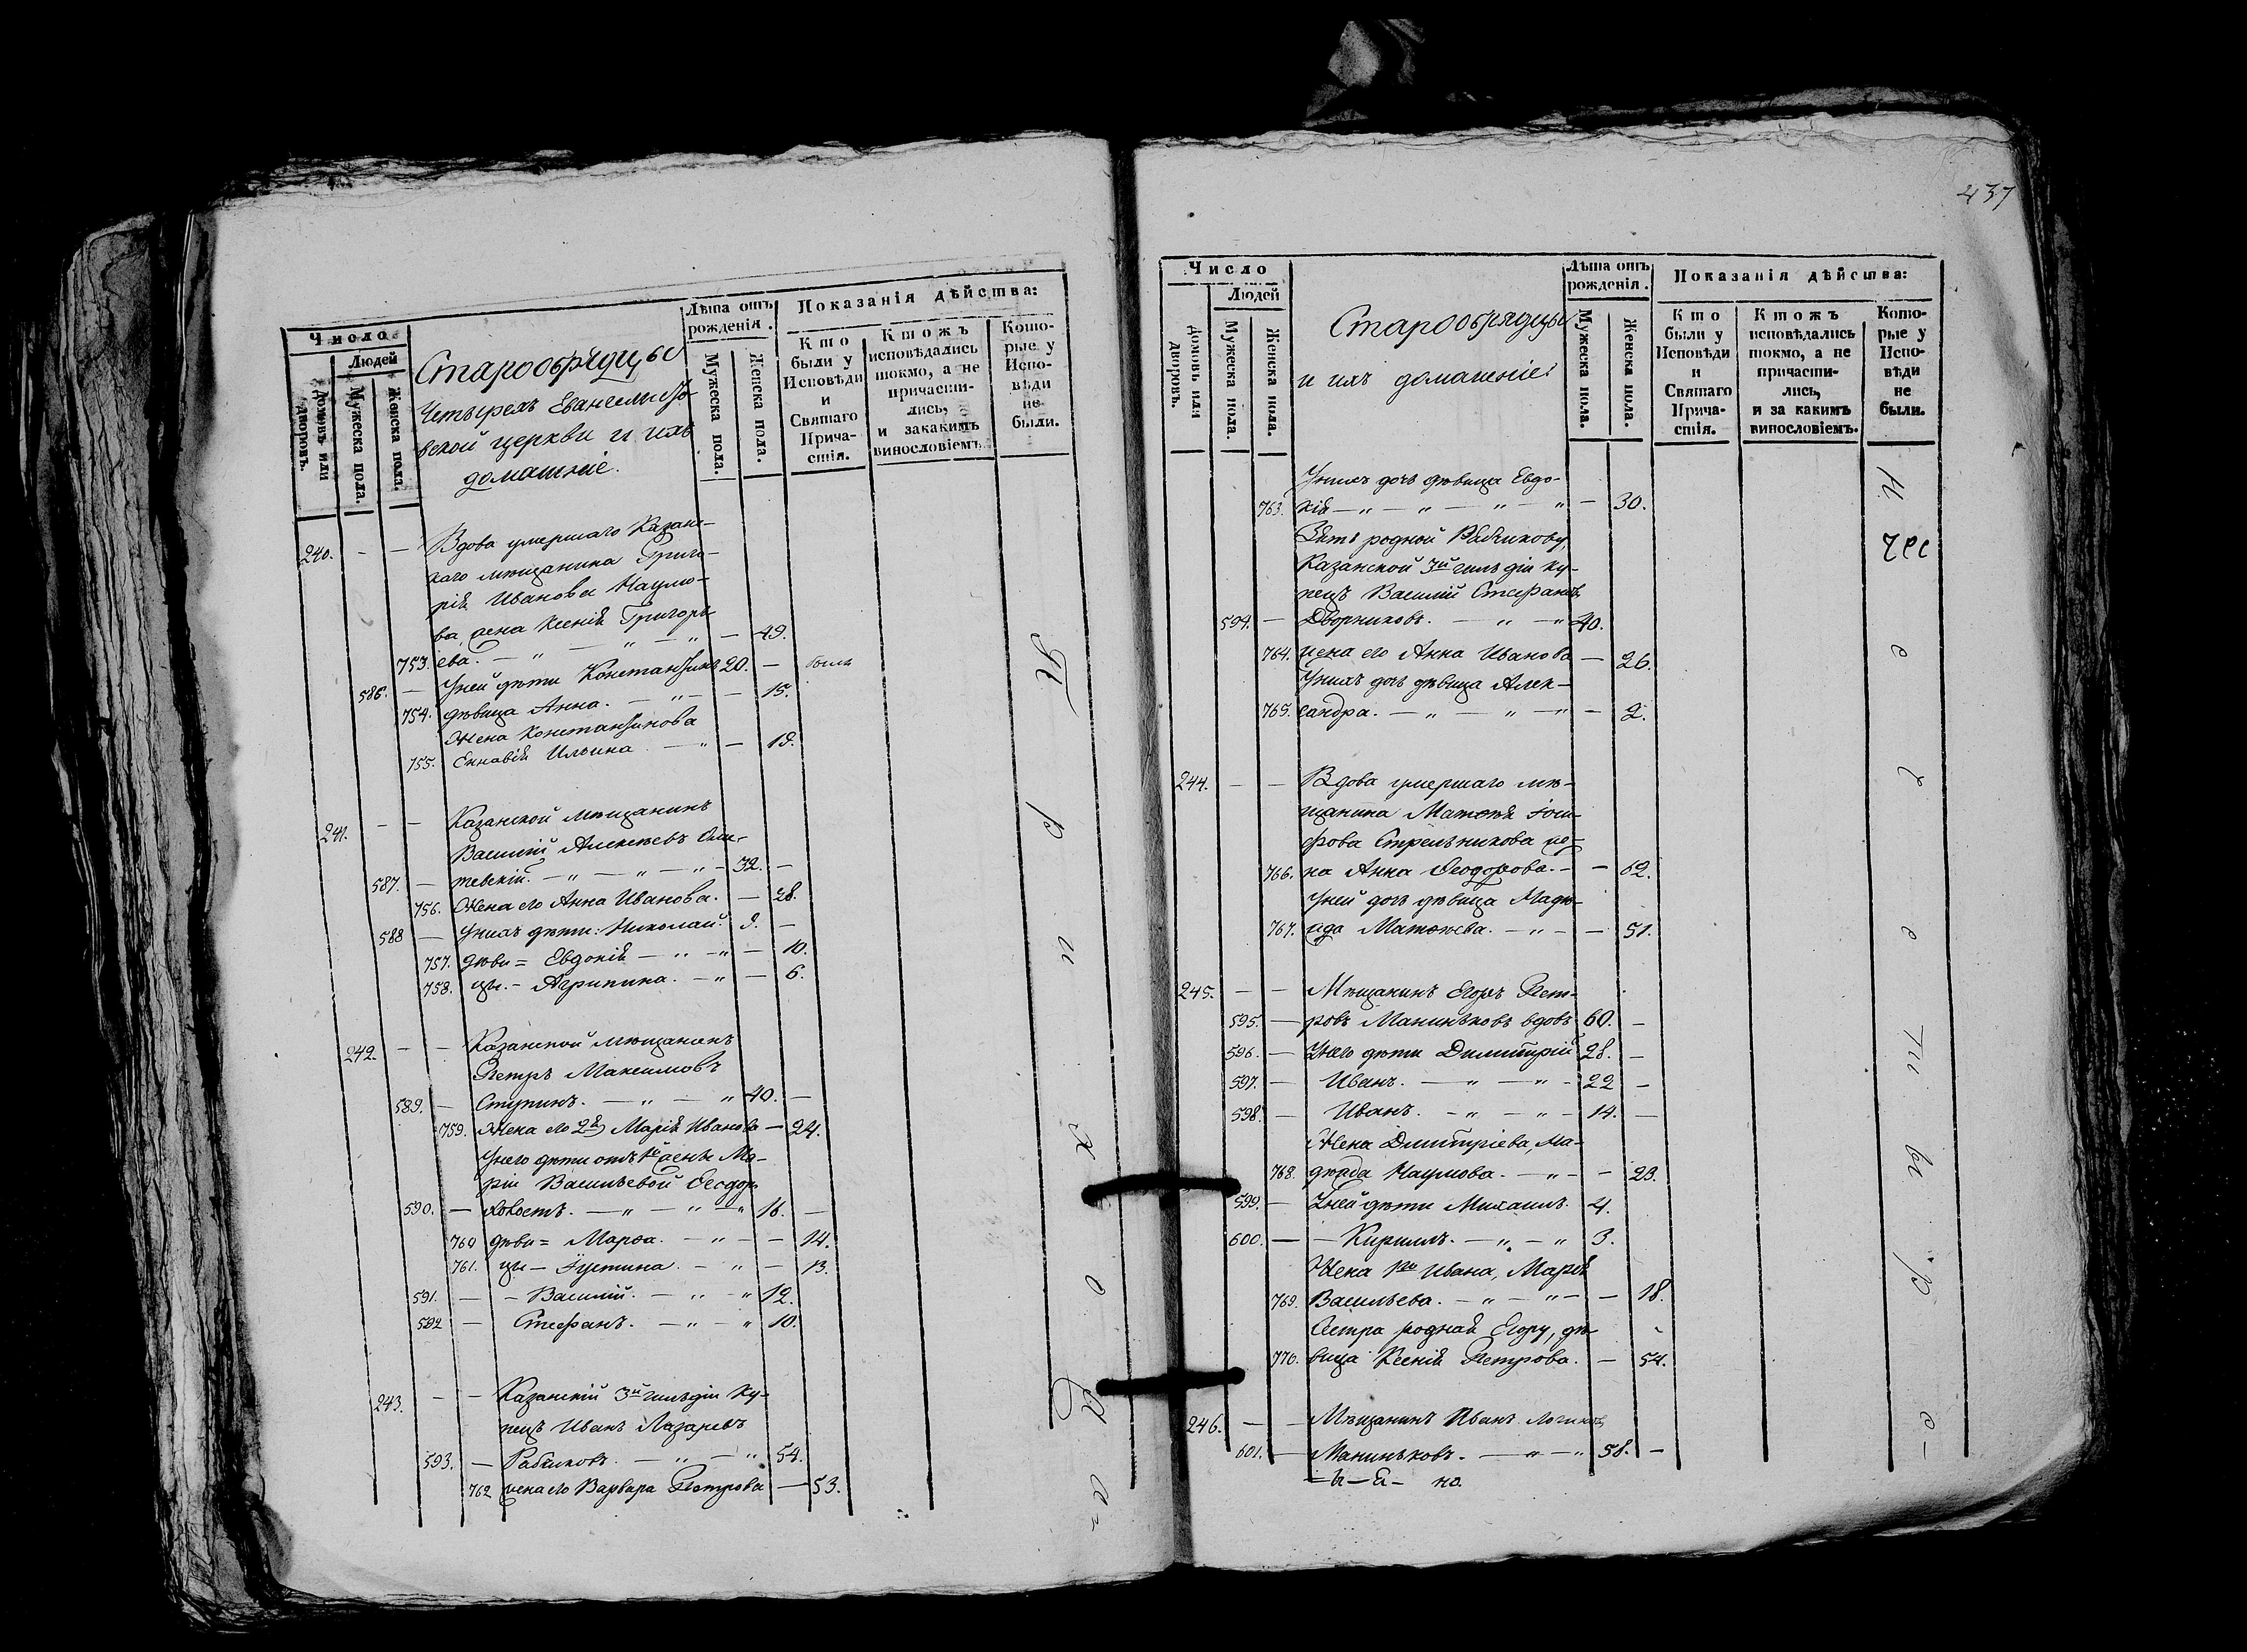 Число
Людей
домовъ или дворовъ.
Мужеска пола.
Женска пола.
Старообрядцы
Четырехъ Евангелисто-
вской церкви и ихъ
домашніе.
Лѣта отъ рожденія.
Мужеска пола.
Женска пола.
Показанія дѣйства:
Кто были у Исповѣди и Святаго Прича- стія.
Ктожъ исповѣдались токмо, а не причасти- лись, и закакимъ винословіемъ.
Кото- рые у Испо- вѣди не были.
240. - - Вдова умершаго Казанс-
каго мѣщанина Григо-
рія Иванова Наумо-
ва жена Ксенія Григорь
753. ева. - „ - „ - „ - 49.
586. - Уней дѣти Константинъ 20. - былъ
754. дѣвица Анна. - „ - - 15.
Жена Константинова
755. Ильина - „ - 19.
241. - - Казанской мѣщанинъ
Василій Алексѣевъ
587. - „ - „ - „ - 32. -
756. Жена его Анна Иванова. - 28.
588 - Унихъ дѣти: Николай. 9. -
757. дѣви= Евдокія - „ - „ - 10.
758. цы. - Агрипина. - „ - 6.
242. - - Казанской мѣщанинъ
Петръ Максимовъ
589. - Ступинъ. - „ - „ 40. -
759. Жена его 2я Марія Иванова - 24.
Унего дѣти отъ 1й жены Ма-
ріи Васильевой Феодор
590. - „ - „ - „ 16. -
760 дѣви= Марѳа. - „ - - 14.
761. цы - Іустина. - „ - 13.
591. - - Василій. - „ - „ 12.
592 - Стефанъ. - „ - „ 10.
243. - - Казанскій 3й гильдіи ку-
пецъ Иванъ Лазаревъ
593. - Рябчиковъ. - „ - „ 54.
762 жена его Варвара Петрова - 53.
437
Число
Людей
домовъ или дворовъ.
Мужеска пола.
Женска пола.
Старообрядцы
и ихъ домашніе:
Лѣта отъ рожденія.
Мужеска пола.
Женска пола.
Показанія дѣйства:
Кто были у Исповѣди и Святаго Прича- стія.
Ктожъ исповѣдались токмо, а не причасти- лись, и за какимъ винословіемъ.
Кото- рые у Испо- вѣди не были.
Унихъ дочь дѣвица Евдо-
763. кія - „ - „ - „ - „ - 30.
Зять родной Рябчикову,
Казанской 3й гильдіи ку-
пецъ Василій Стефановъ
594. - Дворниковъ. - „ - „ 40.
764. жена его Анна Иванова - 26.
Унихъ дочь дѣвица Алек-
765. сандра. - „ - „ - „ - 2.
244. - - Вдова умершаго мѣ-
щанина Матвѣя Іоси-
фова Стрельникова же-
766. на Анна Ѳеодорова. - - 62.
Уней дочь дѣвица
767. Матвѣева. - „ - - 51.
245. - - Мѣщанинъ Егоръ Пет-
595. - ровъ Маниньковъ вдовъ 60. -
596. - Унего дѣти Димитрій 28. -
597. - Иванъ. - „ - „ - 22 -
598 - Иванъ. - „ - „ - 14. -
Жена Дмитріева, Ма-
768. Наумова. - „ - - 23.
599. - Уней дѣти Михаилъ. 4.
600. - - Кириллъ. - „ - „ 3.
Жена 1го Ивана, Марія
769. Васильева. - „ - „ - - 18.
Сестра родная Егору, дѣ-
770. вица Ксенія Петрова. - 54.
246. - - Мѣщанинъ Иванъ Логиновъ
601. - Маниньковъ. - „ - „ 58. -